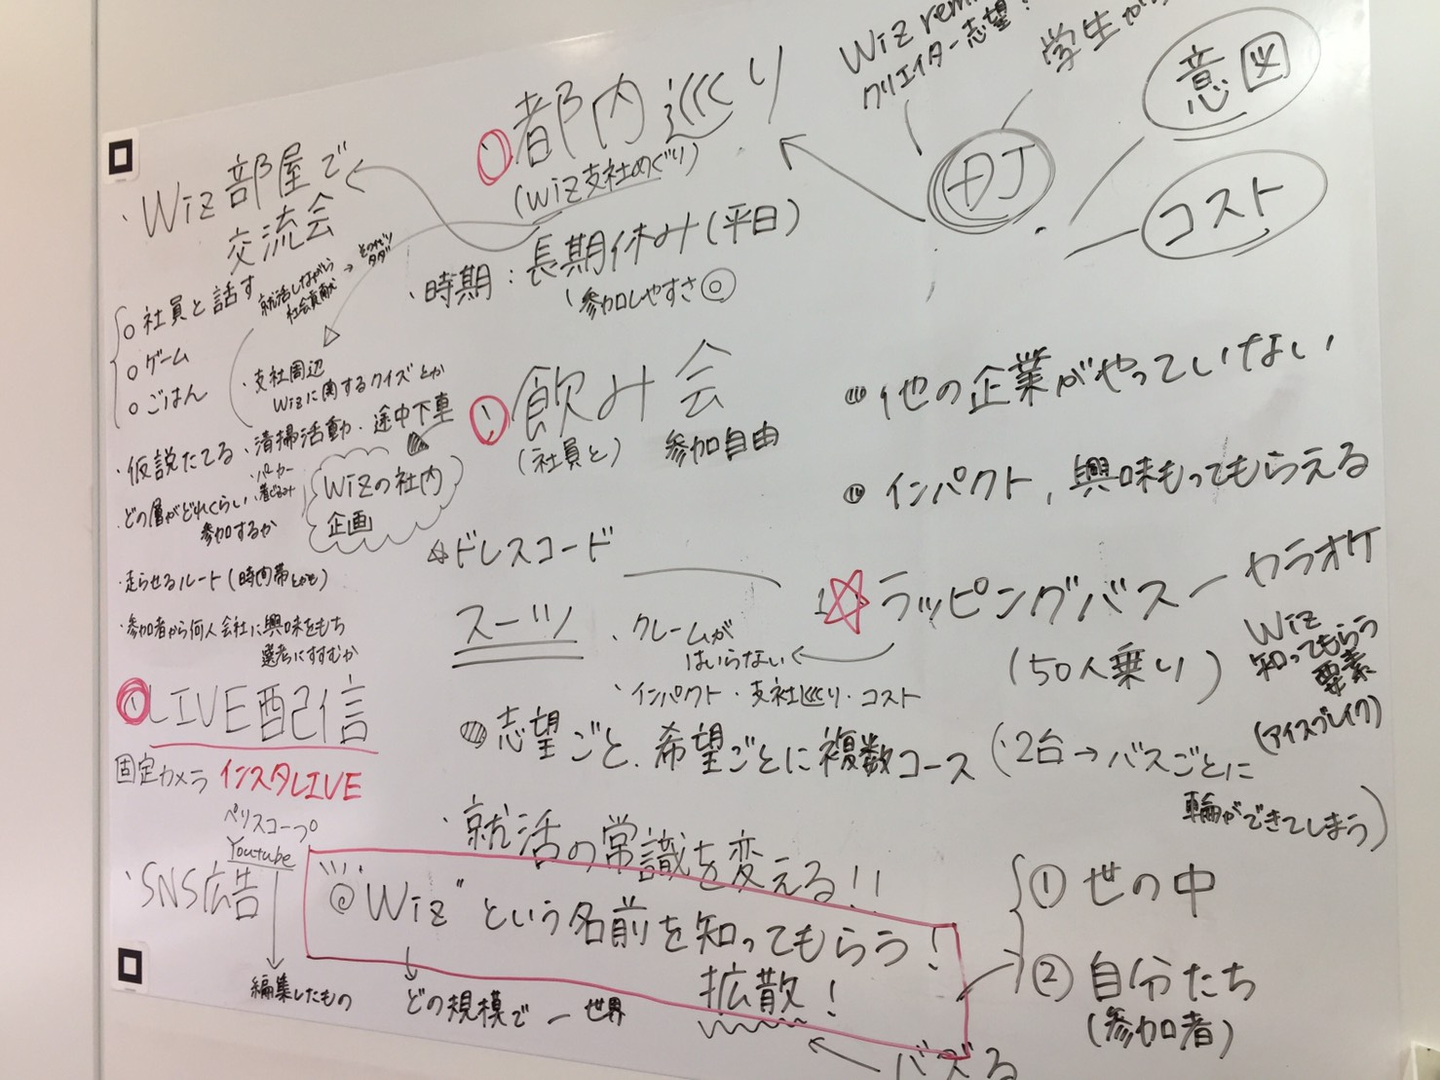 ・Wiz部屋で
交流会
○社員と話す
○ゲーム
○ごはん
就活しながら
社会貢献
・支社周辺
Wizに関するクイズとか
・清掃活動・途中下車
・パーカー
・着ぐるみ
・仮説たてる
・どの層がどれくらい
参加するか
・走らせるルート(時間帯とかも)
・参加者から何人会社に興味をもち
選考にすすむか
Wizの社内
企画
① LIVE配信
固定カメラ インスタLIVE
ペリスコープ
Youtube
・SNS広告
編集したもの
① 都内巡り
(Wiz支社めぐり)
・時期:長期休み(平日)
参加しやすさ◎
① 飲み会
(社員と) 参加自由
☆ドレスコード
スーツ
・クレームが
はいらない
・インパクト・支社巡り・コスト
志望ごと、希望ごとに複数コース
(・2台→バスごとに
輪ができてしまう)
Wiz
クリエイター志望!
学生が
意図
コスト
他の企業がやっていない
インパクト,興味もってもらえる
☆ラッピングバス ー カラオケ
(50人乗り)
Wiz
知ってもらう
要素
(アイスブレイク)
・就活の常識を変える!!
◎"Wiz"という名前を知ってもらう!
拡散!
どの規模で ー 世界
バズる
① 世の中
② 自分たち
(参加者)